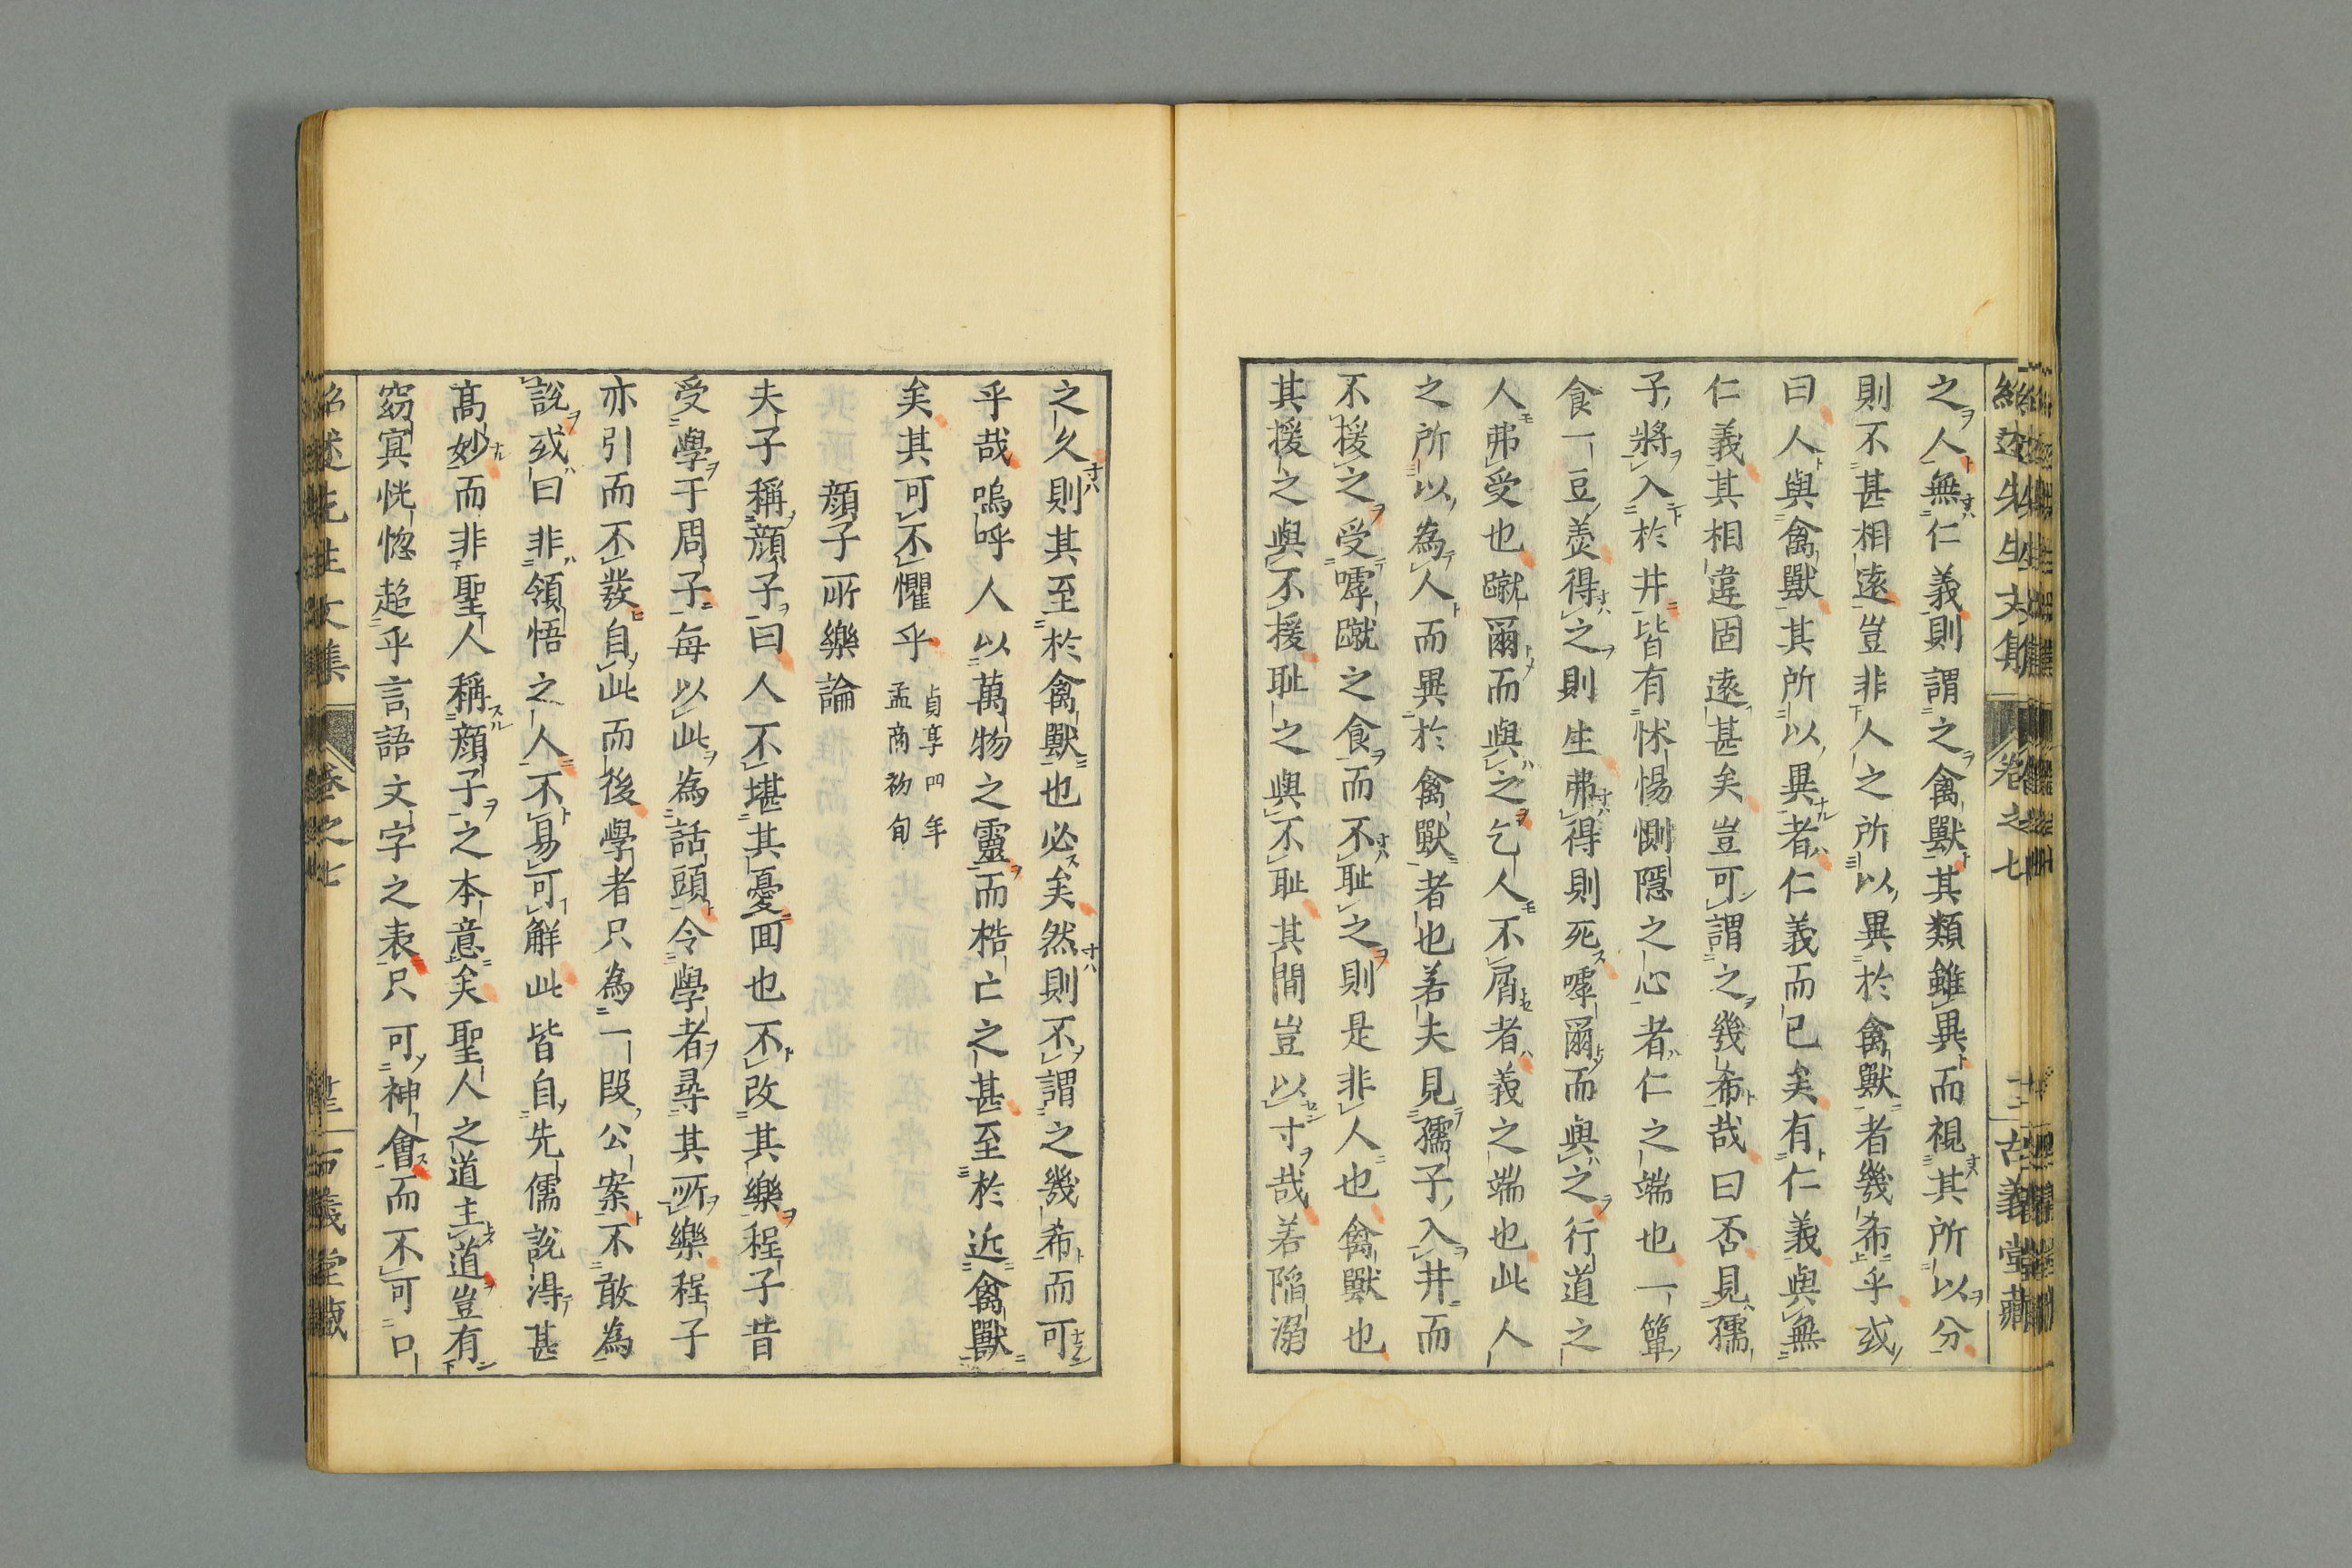 紹述先生文集 卷之七 十二 古義堂藏
之人無仁義則謂之禽獸其類雖異而視其所以分
則不甚相遠豈非人之所以異於禽獸者幾希乎或
曰人與禽獸其所以異者仁義而已矣有仁義與無
仁義其相違固遠甚矣豈可謂之幾希哉曰否見孺
子將入於井皆有怵惕惻隱之心者仁之端也一簞
食一豆羮得之則生弗得則死嘑爾而與之行道之
人弗受也蹴爾而與之乞人不屑者義之端也此人
之所以為人而異於禽獸者也若夫見孺子入井而
不援之受嘑蹴之食而不耻之則是非人也禽獸也
其援之與不援耻之與不耻其間豈以寸哉若陷溺
之久則其至於禽獸也必矣然則不謂之幾希而可
乎哉嗚呼人以萬物之靈而梏亡之甚至於近禽獸
矣其可不懼乎 貞享四年孟商初旬
顏子所樂論
夫子稱顏子曰人不堪其憂回也不改其樂程子昔
受學于周子每以此為話頭令學者尋其所樂程子
亦引而不發自此而後學者只為一段公案不敢為
說或曰非領悟之人不易可解此皆自先儒說得甚
高妙而非聖人稱顏子之本意矣聖人之道主道豈有
窈冥恍惚超乎言語文字之表只可神會而不可口
紹述先生文集 卷之七 古義堂藏